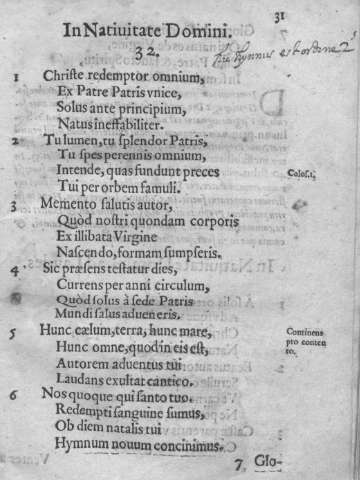 31
In Nativitate Domini.
32.
Hic Hymnus est
1 Christe redemptor omnium,
Ex Patre Patris vnice,
Solus ante principium,
Natus ineffabiliter.
2 Tu lumen, tu splendor Patris,
Tu spes perennis omnium,
Intende, quas fundunt preces
Colos. 1,
Tui per orbem famuli.
3 Memento salutis autor,
Quòd nostri quondam corporis
Ex illibata Virgine
Nascendo, formam sumpseris.
4 Sic præsens testatur dies,
Currens per anni circulum,
Quòd solus à sede Patris
Mundi salus adveneris.
5 Hunc cælum, terra, hunc mare,
Continens
pro conten
to.
Hunc omne, quod in eis est,
Autorem adventus tui
Laudans exultat cantico.
6 Nos quoque qui santo tuo.
Redempti sanguine sumus,
Ob diem natalis tui
Hymnum novum concinimus.
7 Glo-